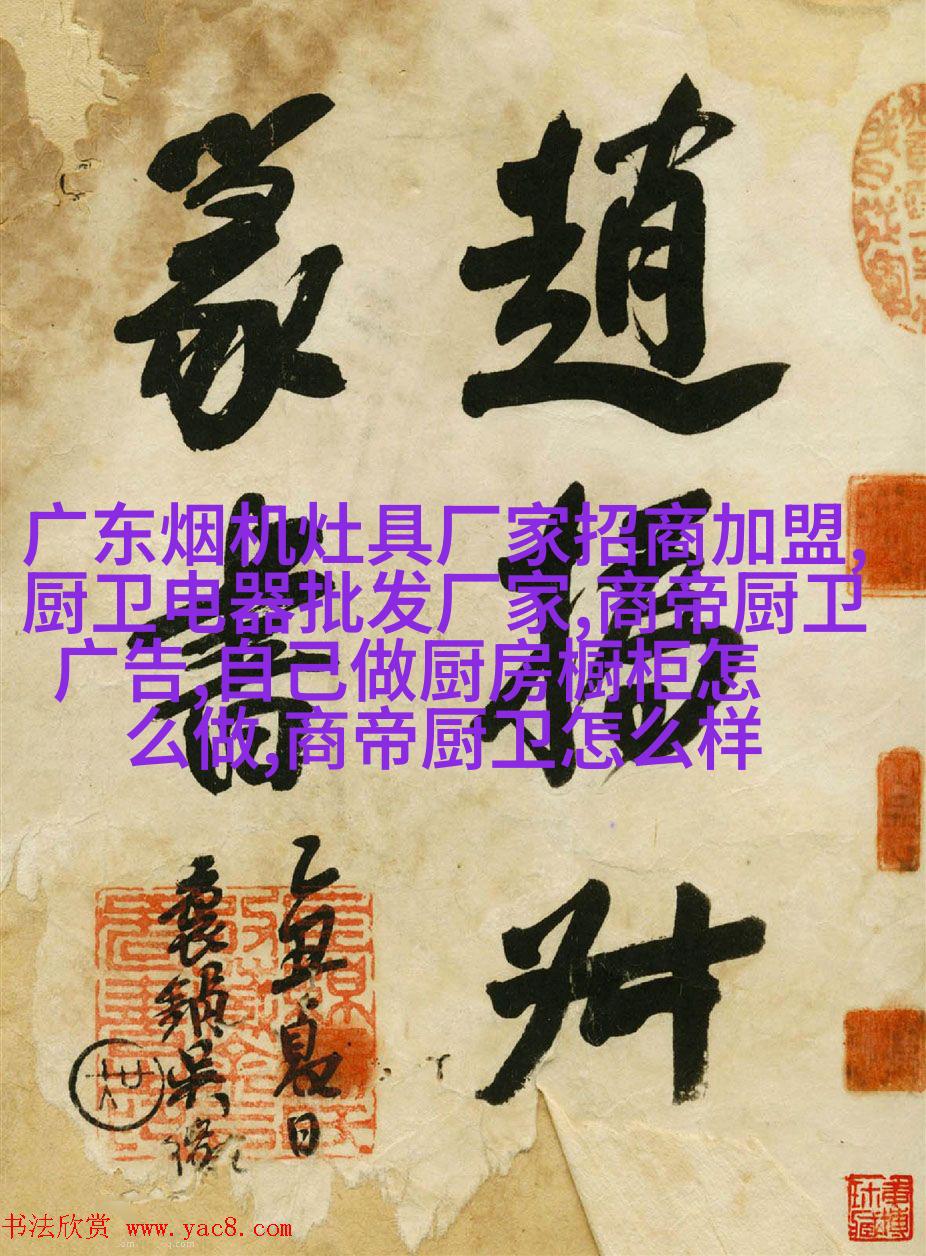 趙撝叔
篆書
广东烟机灶具厂家招商加盟,
厨卫电器批发厂家,商帝厨卫
广告,自己做厨房橱柜怎
么做,商帝厨卫怎么样
乙亥夏日
书法欣赏 www.yac8.com